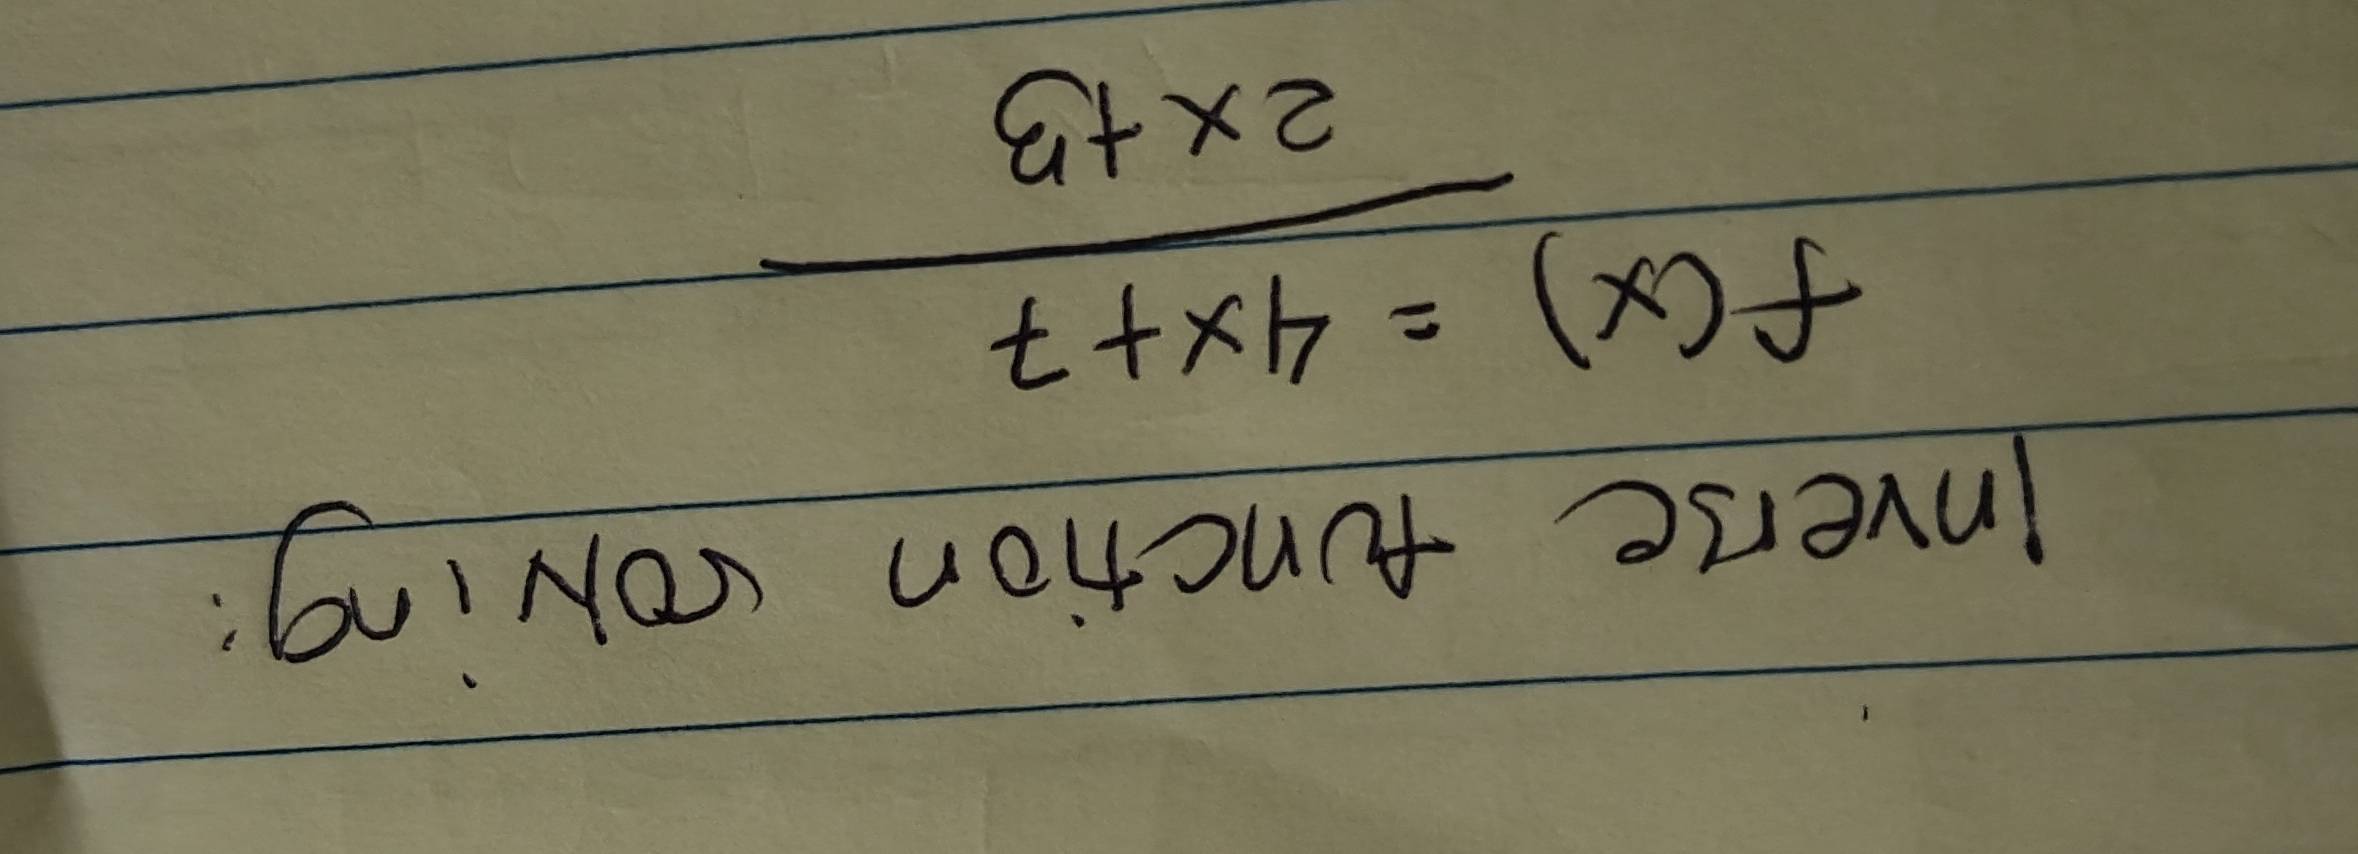 Inverse function solving:
f(x) = 4x+7
2x+3